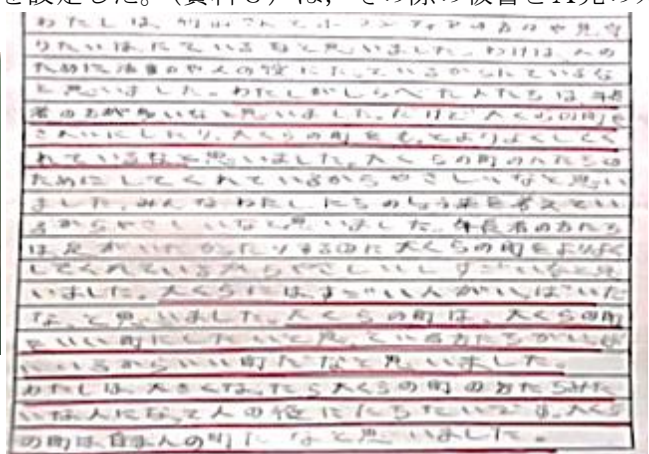 を設定した。(資料8)は,その際の板書とA児の
わたしは、
りたいはにているなと思いました。わけは、人の
ために 人の役にたっているからにているな
と思いました。わたしがしらべた人たちは、年長
者の方が多いなと思いました。だけど大くらの町を
きれいにしたり、大くらの町をもっとよりよくしてく
れているなと思いました。大くらの町の人たちの
ためにしてくれているからやさしいなと思い
ました。みんなわたしたちのしょう来を考えてい
るからやさしいなと思いました。年長者の方たち
は足がいたかったりするのに大くらの町をよりよく
してくれているからやさしいしすごいなと思
いました。大くらには、すごい人がいっぱいいた
な、と思いました。大くらの町は、大くらの町
をいい町にしたいと思っている方たちがいっぱ
いいるからいい町だなと思いました。
わたしは、大きくなったら大くらの町の方たちみた
いな人になって人の役にたちたいです。大くら
の町は自まんの町だなと思いました。